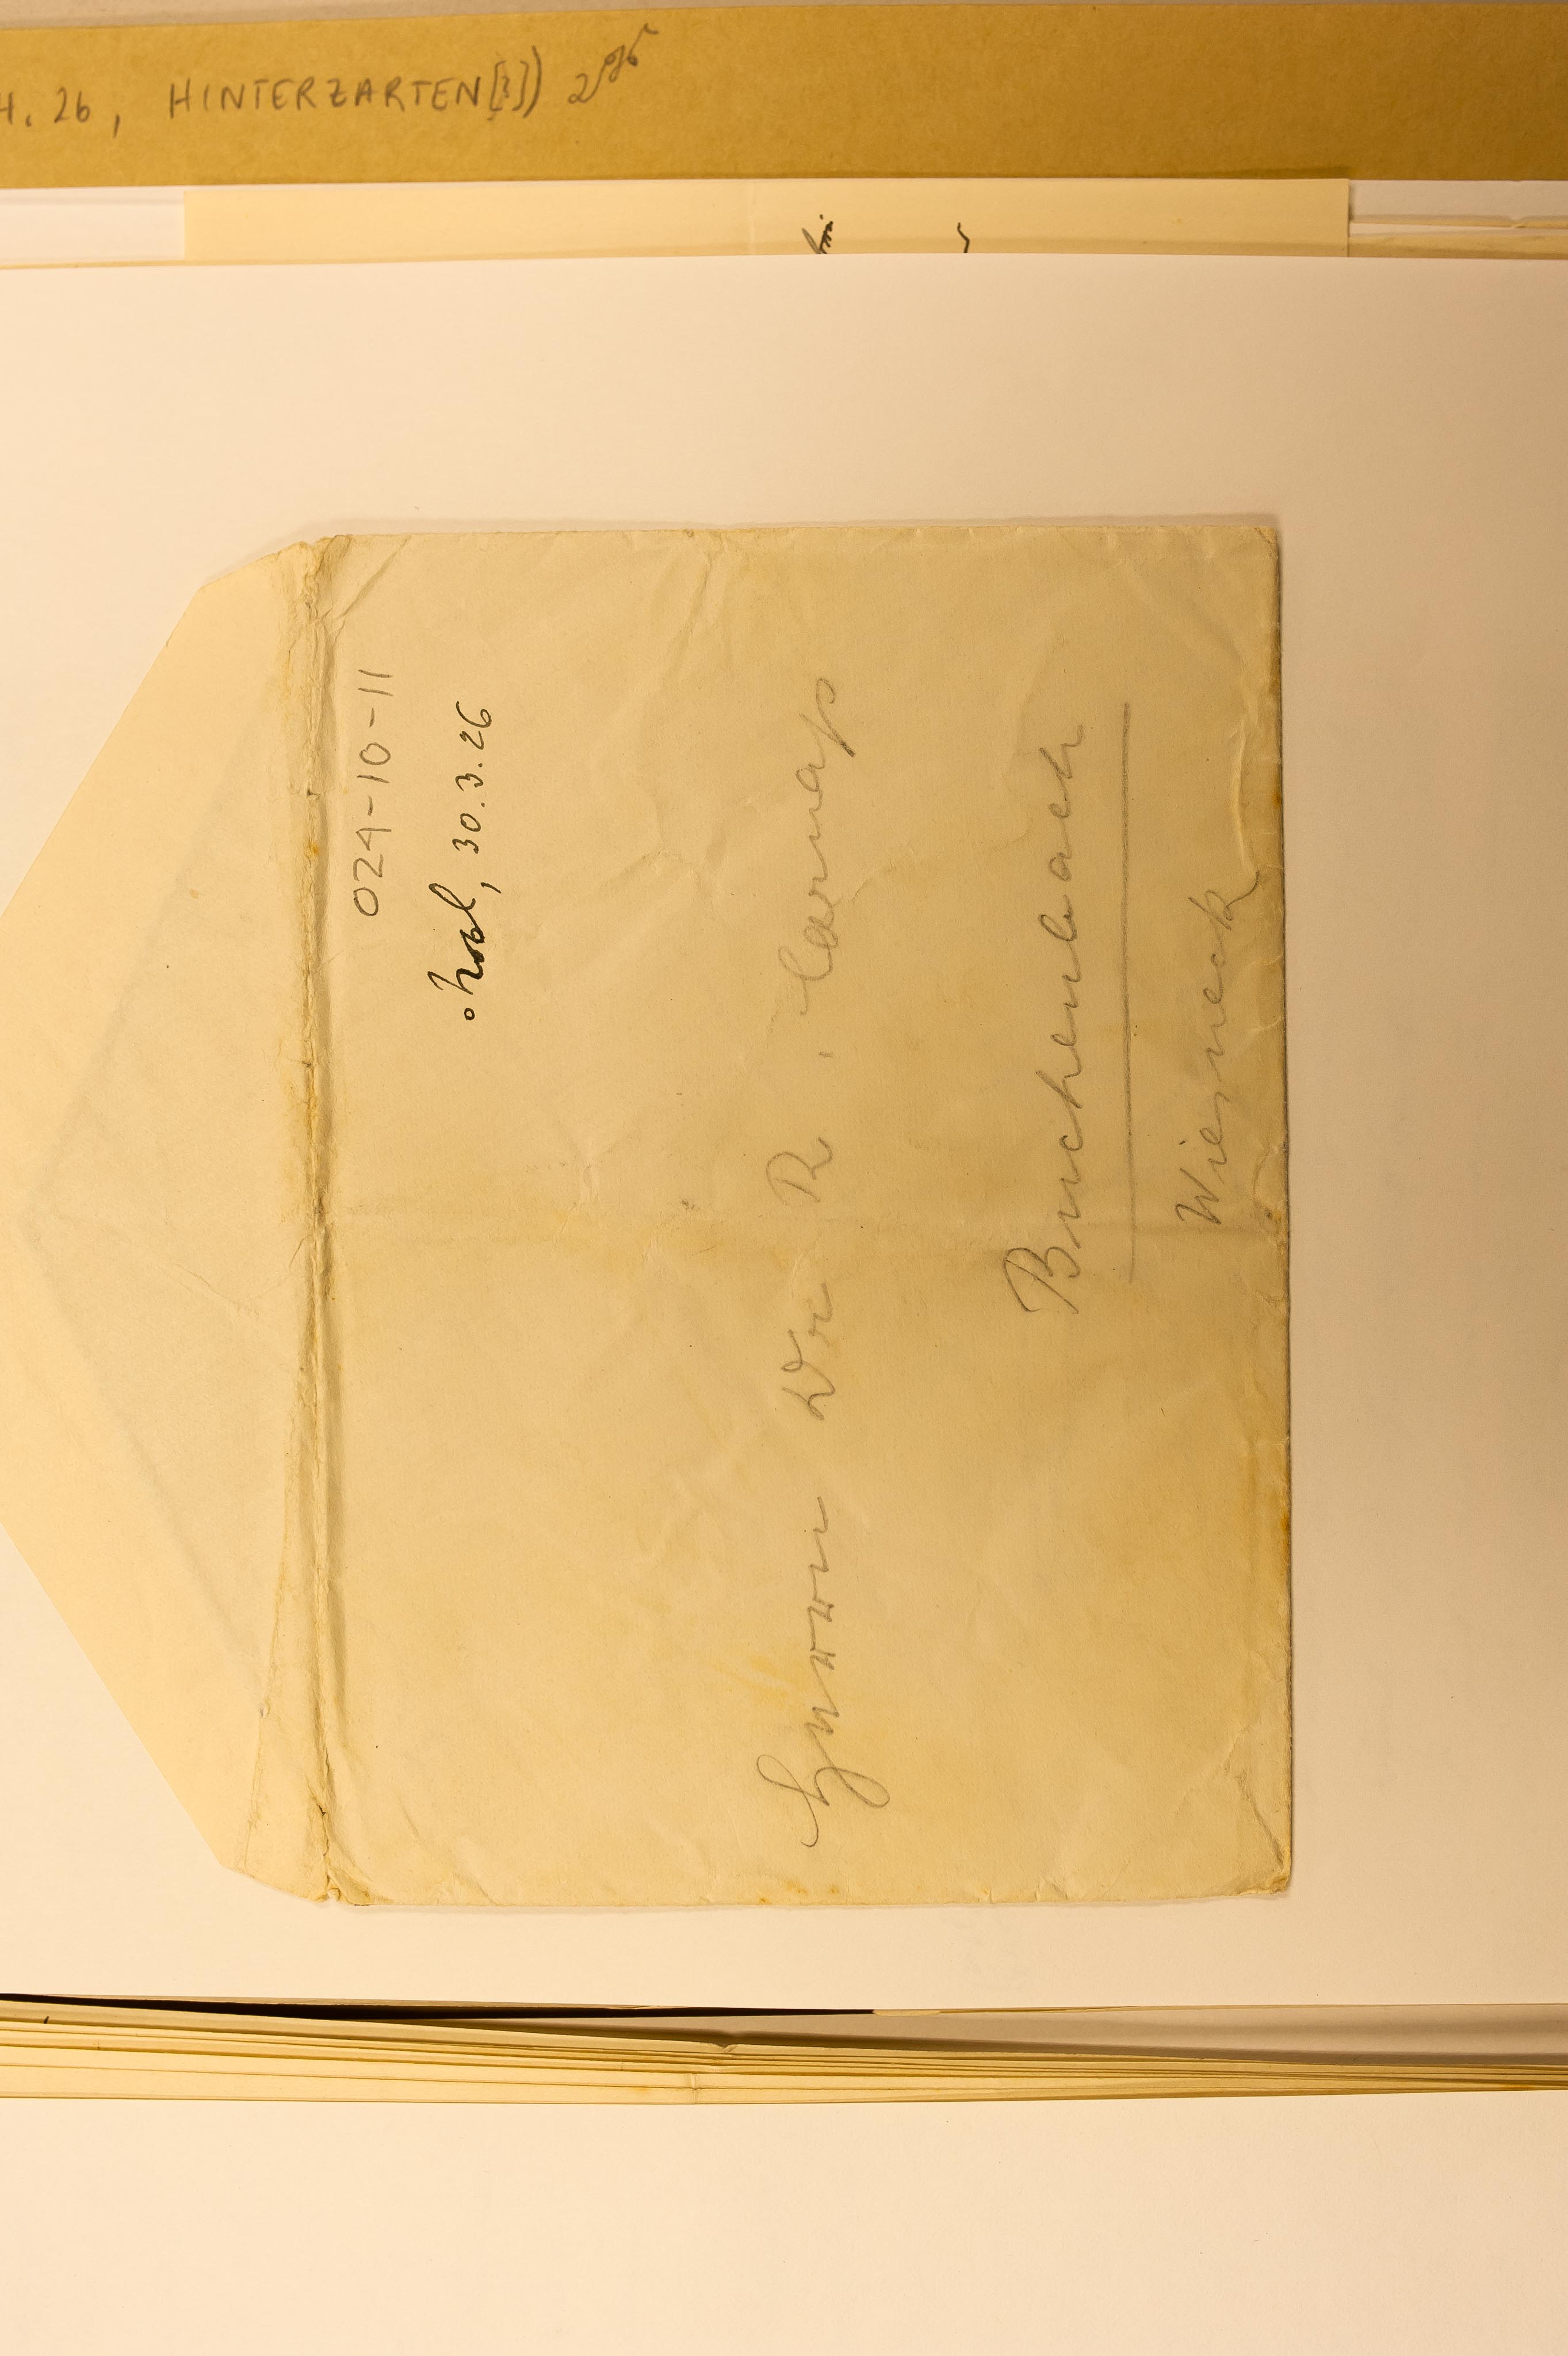 H. 26, HINTERZARTEN[?]) 2
024-10-11
30.3.26
Herrn Dr R. Carnap
Buchenbach
Wiesneck